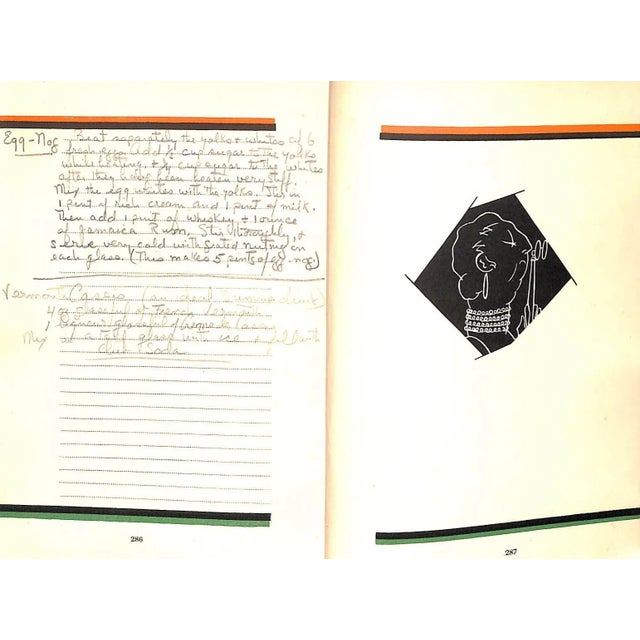 Egg-Nog Beat separately the yolks & whites of 6
fresh eggs. Add ½ cup sugar to the yolks
while beating, & ¼ cup sugar to the whites
after they have been beaten very stiff.
Mix the egg whites with the yolks. Stir in
1 pint of rich cream and 1 pint of milk.
Then add 1 pint of whiskey & 1 ounce
of Jamaica Rum. Stir thoroughly, &
serve very cold with grated nutmeg on
each glass. (This makes 5 pints of egg nog.)
Vermouth Cassis (an ideal summer drink)
4 oz glassful of French Vermouth
1 liqueur glassful of Creme de Cassis
Mix in a tall glass with ice & fill with
Club Soda
286
287